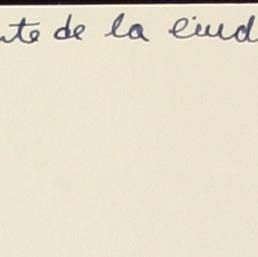 nte de la ciud